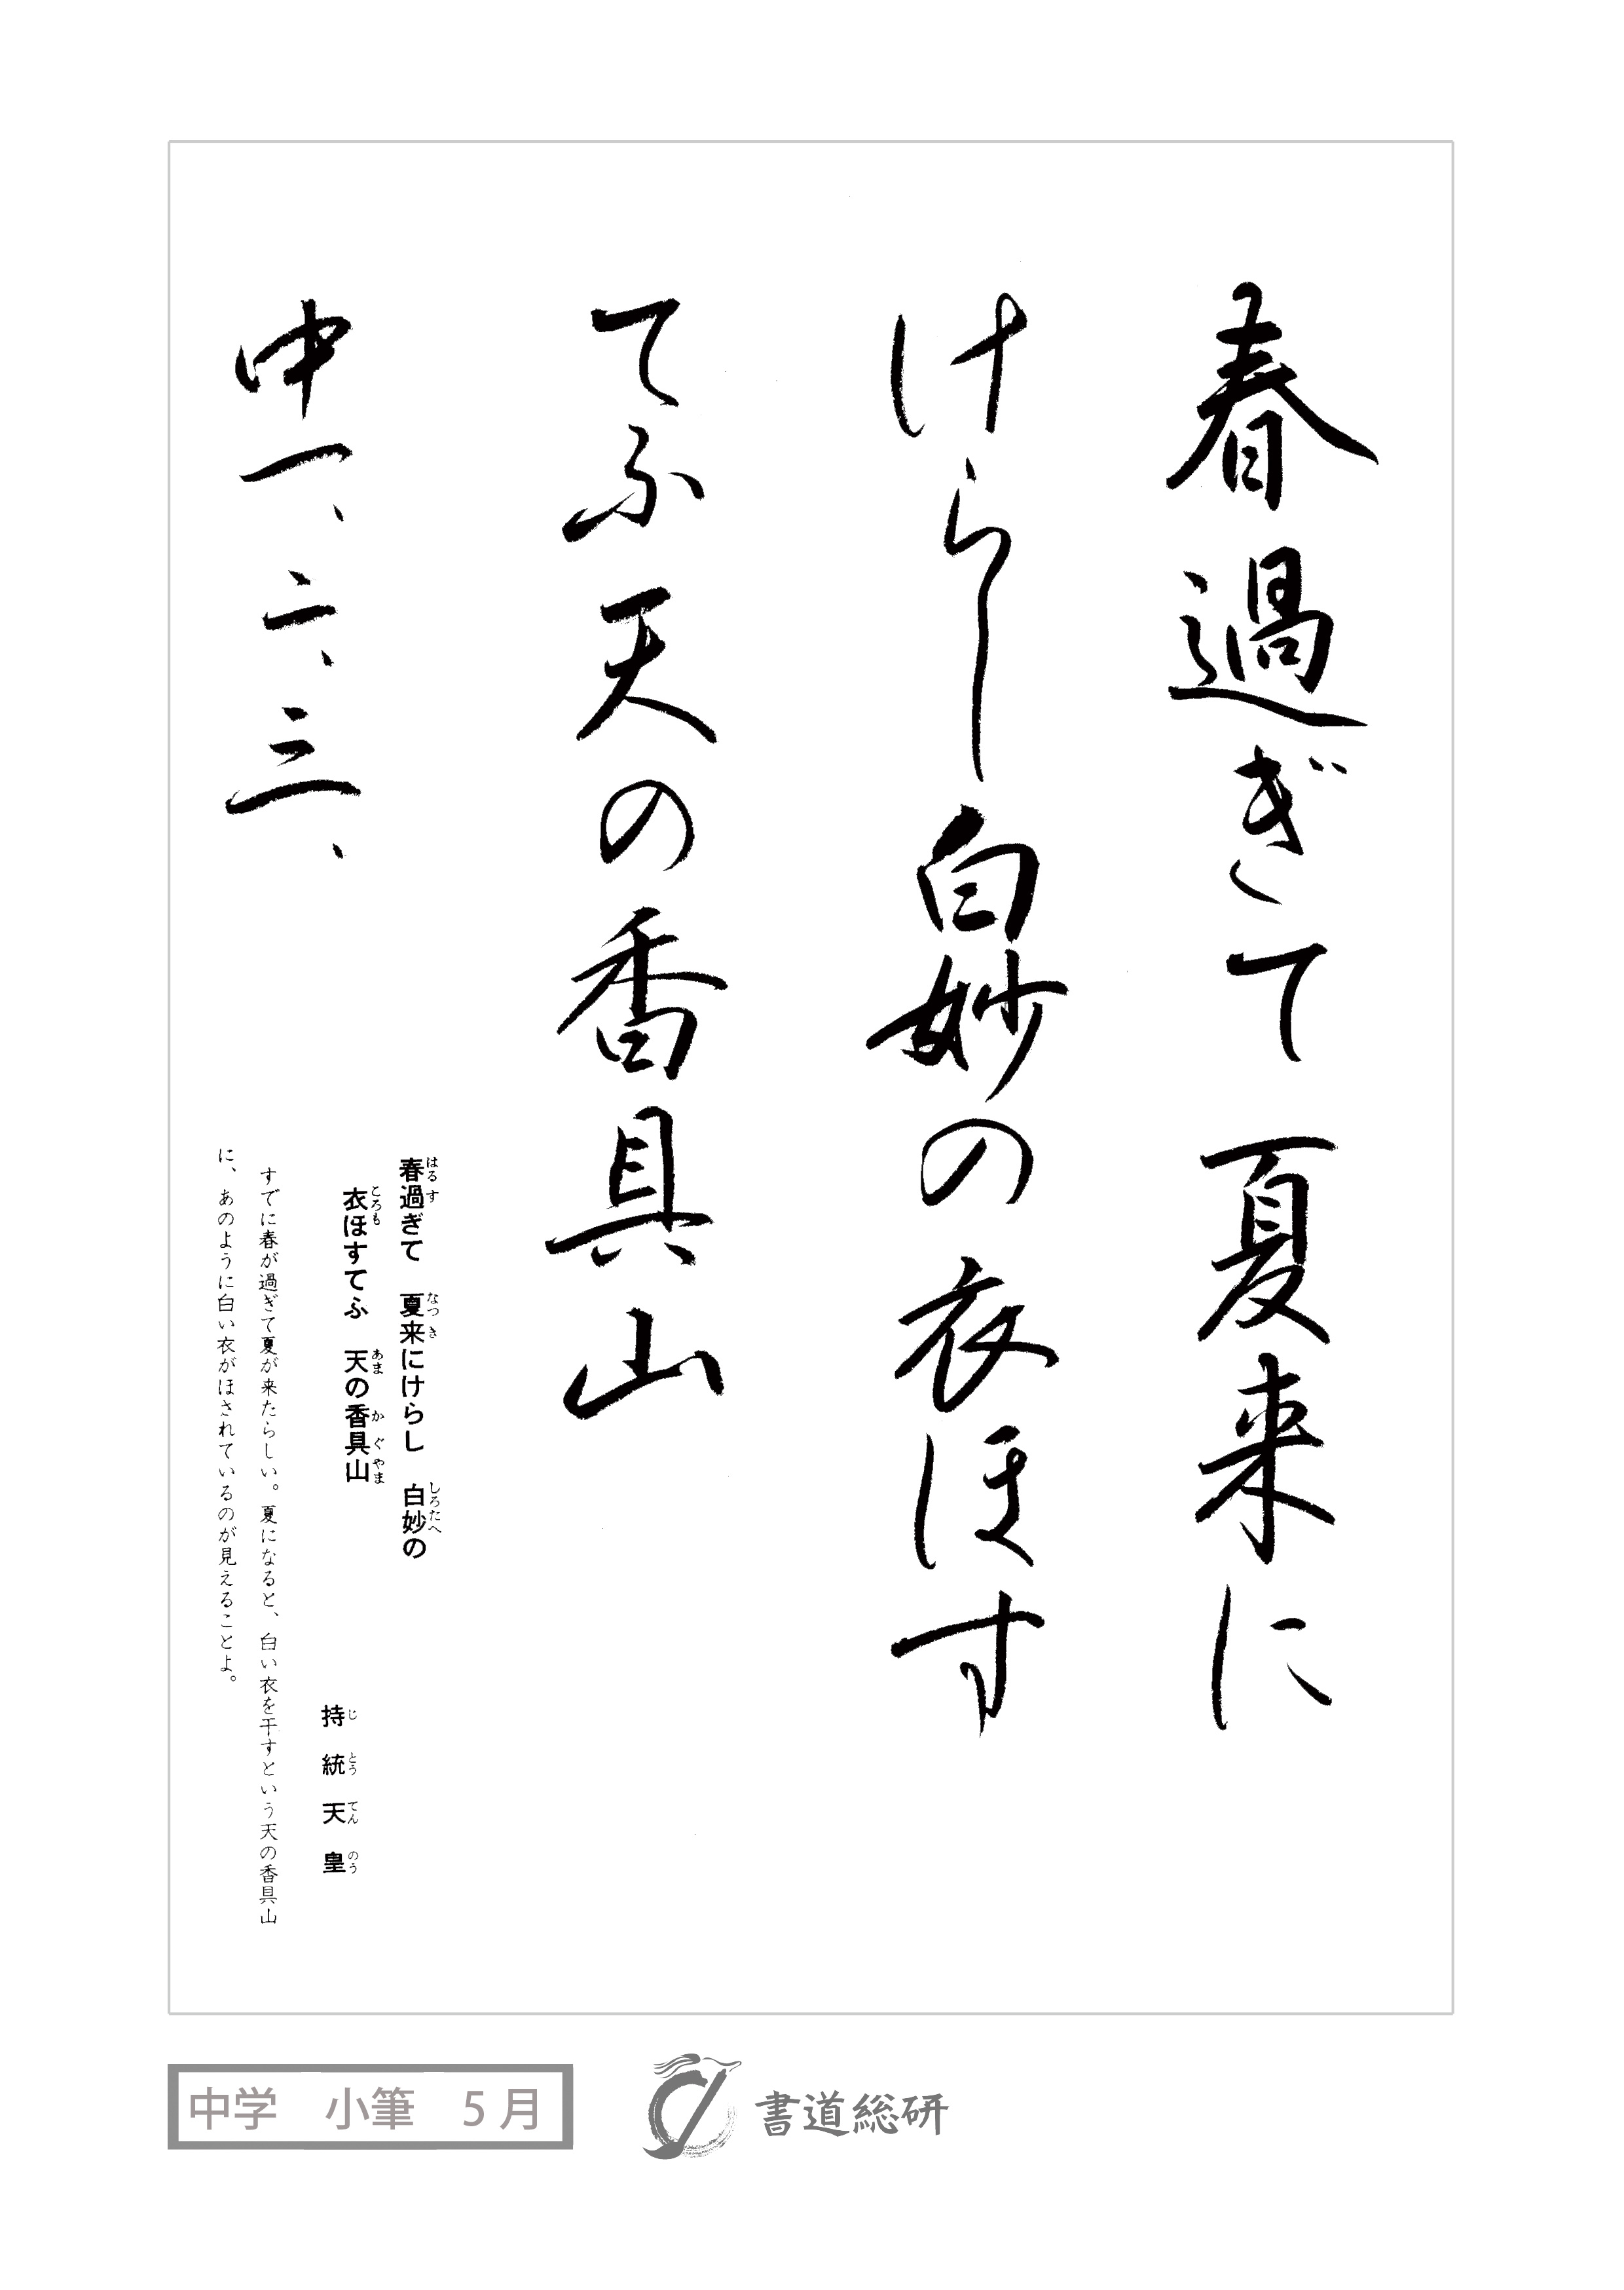 春過ぎて夏来に
けらし白妙の衣ほす
てふ天の香具山
中一、二、三、
春過ぎて　夏来にけらし　白妙の
はる す なつ き しろたへ
衣ほすてふ　天の香具山
ころも あま か ぐ やま
持統天皇
じ とう てん のう
すでに春が過ぎて夏が来たらしい。夏になると、白い衣を干すという天の香具山
に、あのように白い衣がほされているのが見えることよ。
中学　小筆　5月
書道総研